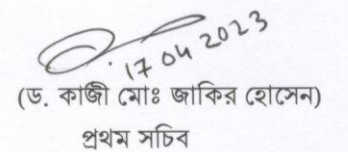 17 04 2023
(ড. কাজী মোঃ জাকির হোসেন)
প্রথম সচিব